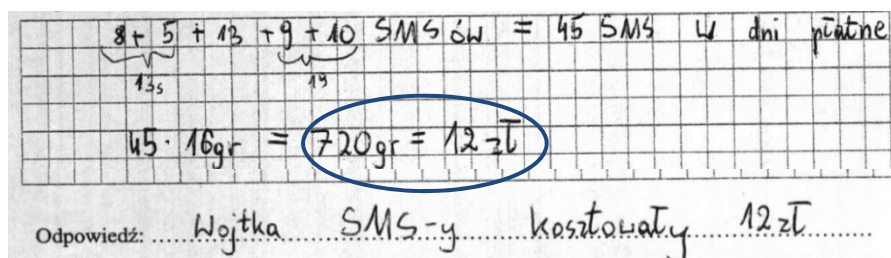 8 + 5 + 13 + 9 + 10 SMS ów = 45 SMS w dni płatne
13s 19
45 · 16gr = 720gr = 12 zł
Odpowiedź: Wojtka SMS-y kosztowały 12 zł